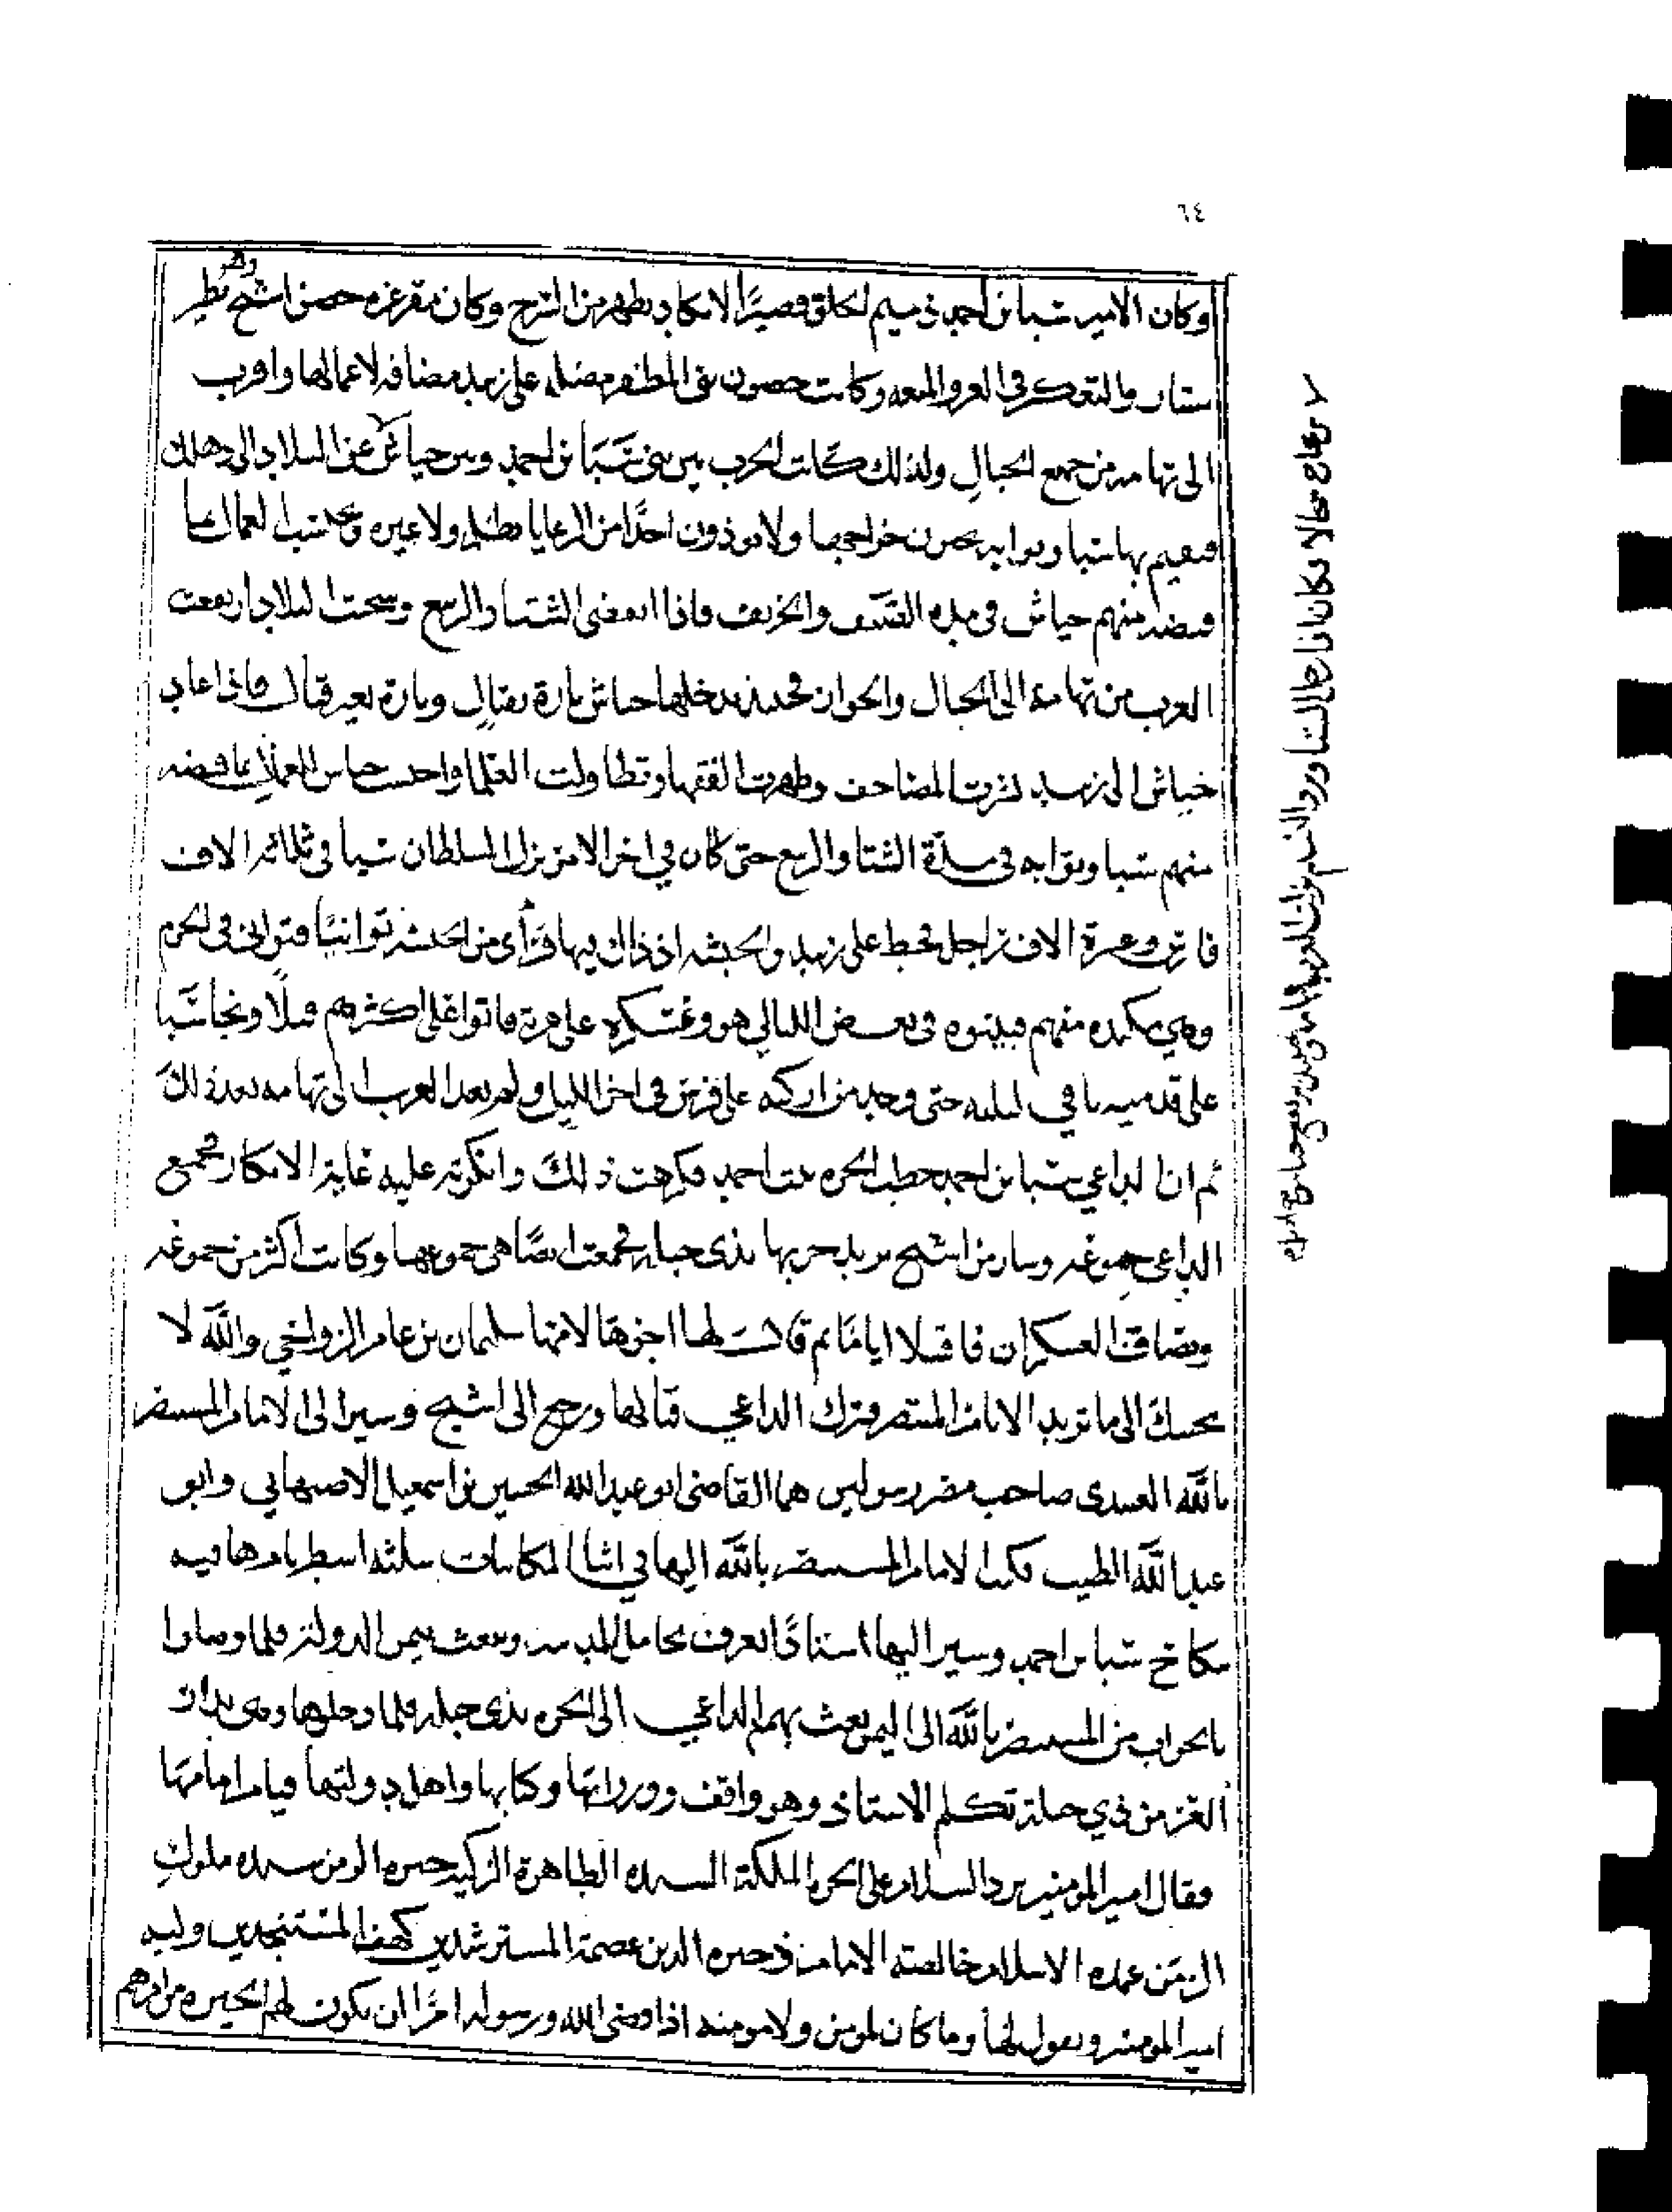 ٦٤
وكان الامير سبا بن احمد ذميم الخلق قصيرًا لا يكاد يظهر من السرج وكان مقر عزه حصن اشيح وهو نظير
مسار والتعكر في العز والمنعه وكانت حصون بني المظفر مطله على زبيد مضافه لاعمالها واقرب
الى تهامه من جميع الجبال ولذلك كانت الحرب بين سبا بن احمد وبين جياش عن البلاد الى دهلك
فيقيم بها سبا ونوابه يجبون خراجها ولا يوذون احدًا من الرعايا بظلم ولا غيره ويحتسب العمال بما
قبضه منهم جياش في مده الصيف والخريف فاذا انقضى الشتا والربيع وسحت البلاد ارتفعت
العرب من تهامه الى الجبال والحواز فحينئذ يدخلها جياش تارة بقتال وتارة بغير قتال فاذا عاد
جياش الى زبيد نشرت المصاحف وظهرت الفقها وتطاولت العلما واحتسب جياش للعمال ما قبضه
منهم سبا ونوابه في مدة الشتا والربيع حتى كان في اخر الامر نزل السلطان سبا في ثلاثه الاف
فارس وعشرة الاف راجل فحط على زبيد والحبشه اذ ذاك بها فراى من الحبشه توانيًا فتوانى في الحزم
وهي مكيده منهم فبيتوه في بعض الليالي هو وعسكره على غرة فاتوا على اكثرهم قتلًا ونجا سبا
على قدميه باقي ليلته حتى وجد من اركبه على فرس في اخر الليل ولم يعد العرب الى تهامه بعد ذلك
ثم ان الداعي سبا بن احمد خطب الحره بنت احمد فكرهت ذلك وانكرته عليه غايه الانكار فجمع
الداعي جموعه وسار من اشيح يريد حربها بذي جبله فجمعت ايضًا هي جموعها وكانت اكثر من جموعه
وتصاف العسكران فاقتتلا ايامًا ثم قال لها اخوها لامها سليمان بن عامر الزواحي والله لا
يجيبك الى ما تريد الا الامام المستنصر فترك الداعي قتالها ورجع الى اشيح وسير الى الامام المستنصر
بالله العبيدي صاحب مصر رسولين هما القاضي ابو عبد الله الحسين بن اسمعيل الاصبهاني وابو
عبد الله الطيب فكتب الامام المستنصر بالله اليها في اثنا المكاتبات ثلثه اسطر يامرها فيه
بنكاح سبا بن احمد وسير اليها استاذًا يعرف بحامل الدواه وينعت بيمين الدوله فلما وصلوا
بالجواب من المستنصر بالله الى اليمن بعث بهم الداعي الى الحره بذي جبله فلما دخلوها وهي بدار
العز من ذي جبله تكلم الاستاذ وهو واقف ووزرائها وكتابها واهل دولتها قيام امامها
فقال امير المومنين يرد السلام على الحره الملكة السيده الطاهرة الزكيه وحيده الزمن سيده ملوك
اليمن عمده الاسلام خالصه الامام ذخيره الدين عصمة المسترشدين كهف المستنجدين وليه
امير المومنين ويقول لها وما كان لمومن ولا مومنه اذا قضى الله ورسوله امرًا ان يكون لهم الخيره من امرهم